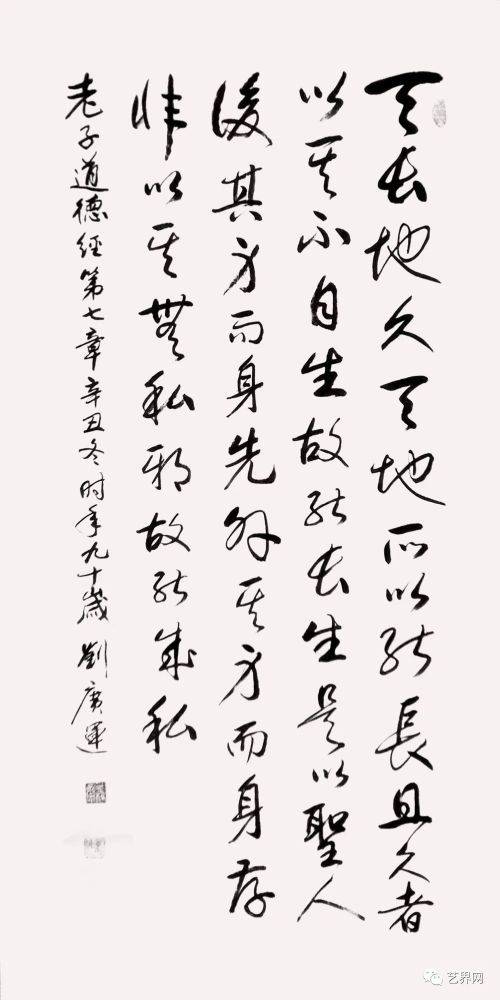 天长地久天地所以能長且久者
以其不自生故能长生是以聖人
後其身而身先外其身而身存
非以其無私邪故能成私
老子道德經第七章辛丑冬时年九十歲劉廣運
艺界网